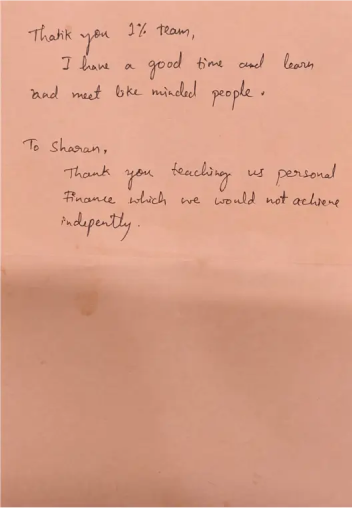 Thank you 1% team,
I have a good time and learn
and meet like minded people.
To Sharan,
Thank you teaching us personal
Finance which we would not achieve
indepently.